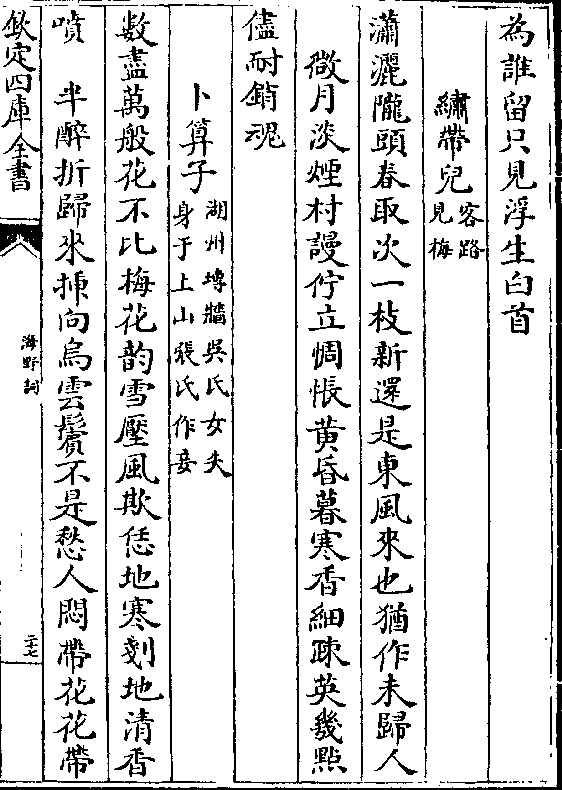 為誰留只見浮生白首
繡帶兒客路見梅
瀟灑隴頭春取次一枝新還是東風來也猶作未歸人
微月淡煙村謾佇立惆悵黄昏暮寒香細疎英幾點
儘耐銷魂
卜算子湖州塼牆吳氏女失身于上山張氏作妾
數盡萬般花不比梅花韵雪壓風欺恁地寒剗地清香
噴　半醉折歸來揷向烏雲鬢不是愁人悶帶花花帶
欽定四庫全書
海野詞
二十七